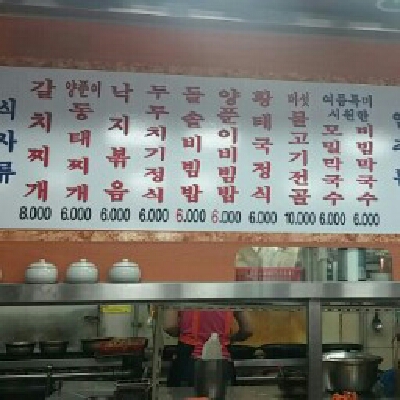 식사류
갈치찌개
8.000
양푼이
동태찌개
6.000
낙지볶음
6.000
두루치기정식
6.000
돌솥비빔밥
6.000
양푼이비빔밥
6.000
황태국정식
6.000
버섯
불고기전골
10.000
여름특미
시원한
모밀막국수
6.000
비빔막국수
6.000